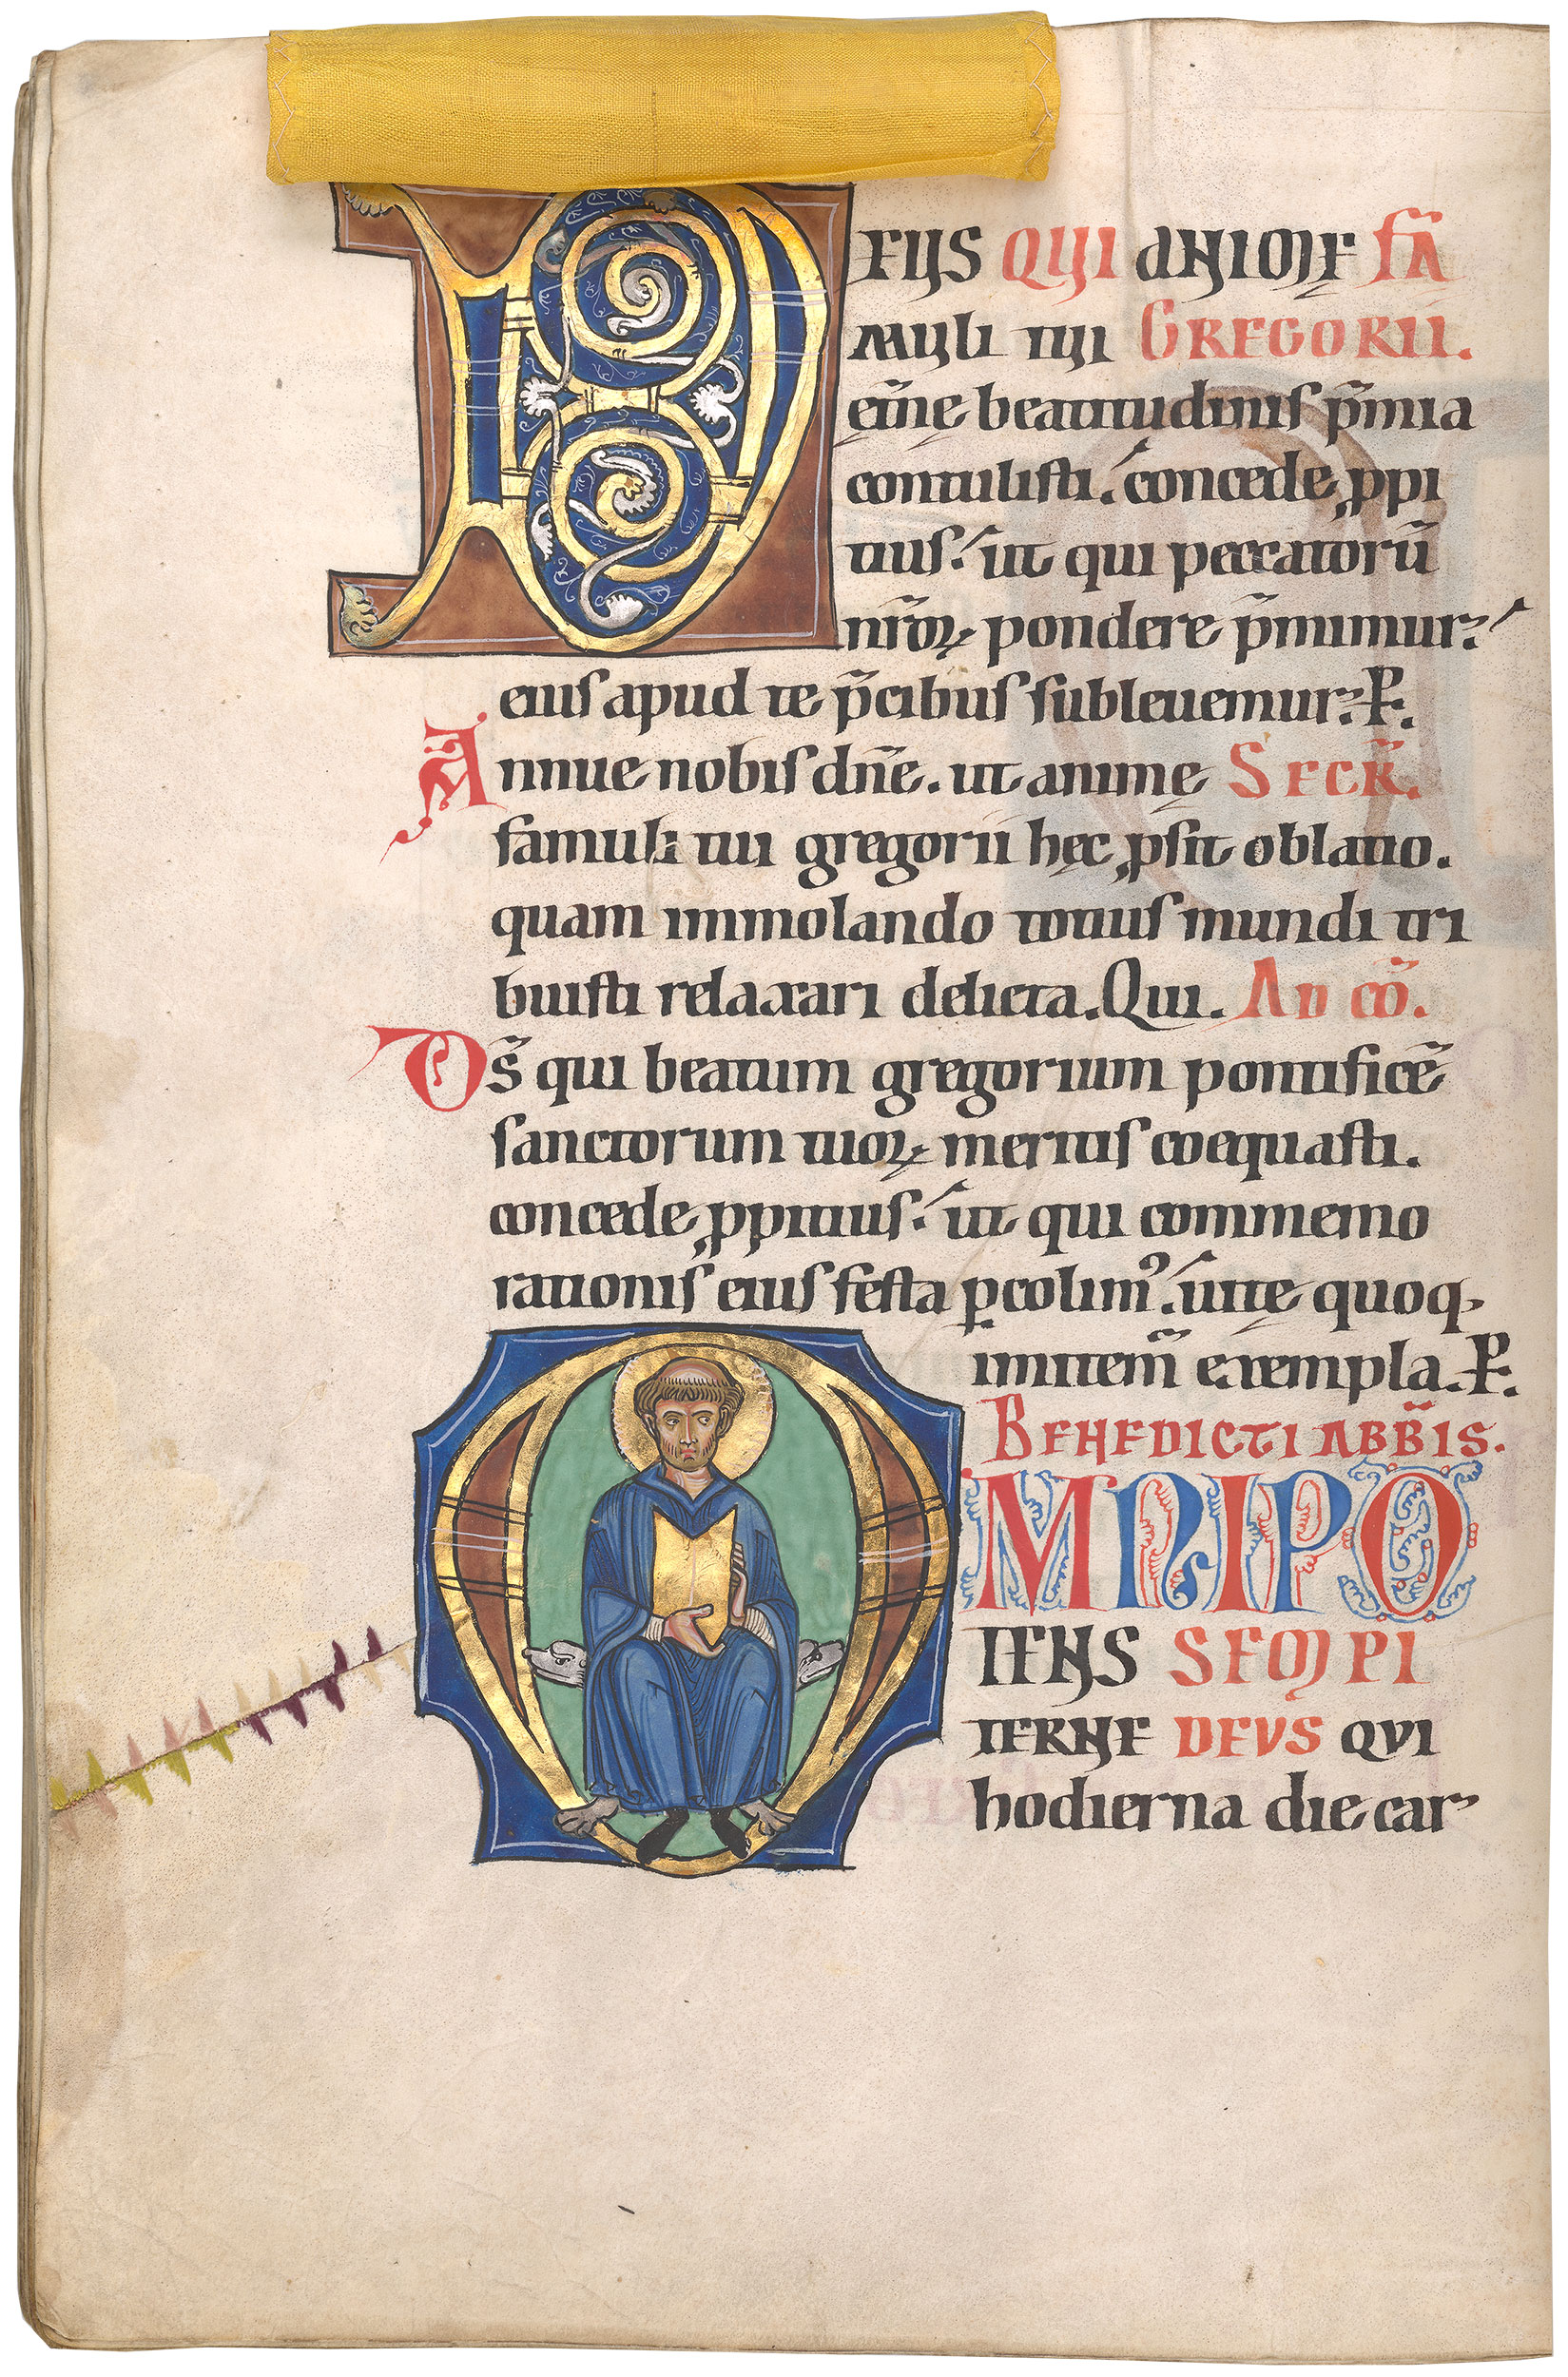 DEUS QUI ANIME FA
MULI TUI GREGORII.
ęt̃nę beatitudinis p̃mia
contulisti. concede ꝓpi
tius. ut qui peccatorũ
nr̃oꝝ pondere p̃mimur.
eius apud te p̃cibus subleuemur. P.
Annue nobis dñe. ut animę SECR̃.
famuli tui gregorii hęc ꝓsit oblatio.
quam immolando totius mundi tri
buisti relaxari delicta. Qui. AD CÕ.
Ds̃ qui beatum gregorium pontificẽ
sanctorum tuoꝝ meritis coequasti.
concede ꝓpitius. ut qui commemo
rationis eius festa ꝑcolimꝰ. uitę quoq,
imitem̃ exempla. P.
BENEDICTI ABB̃IS.
OMNIPO
TENS SEMPI
TERNE DEVS QVI
hodierna die car